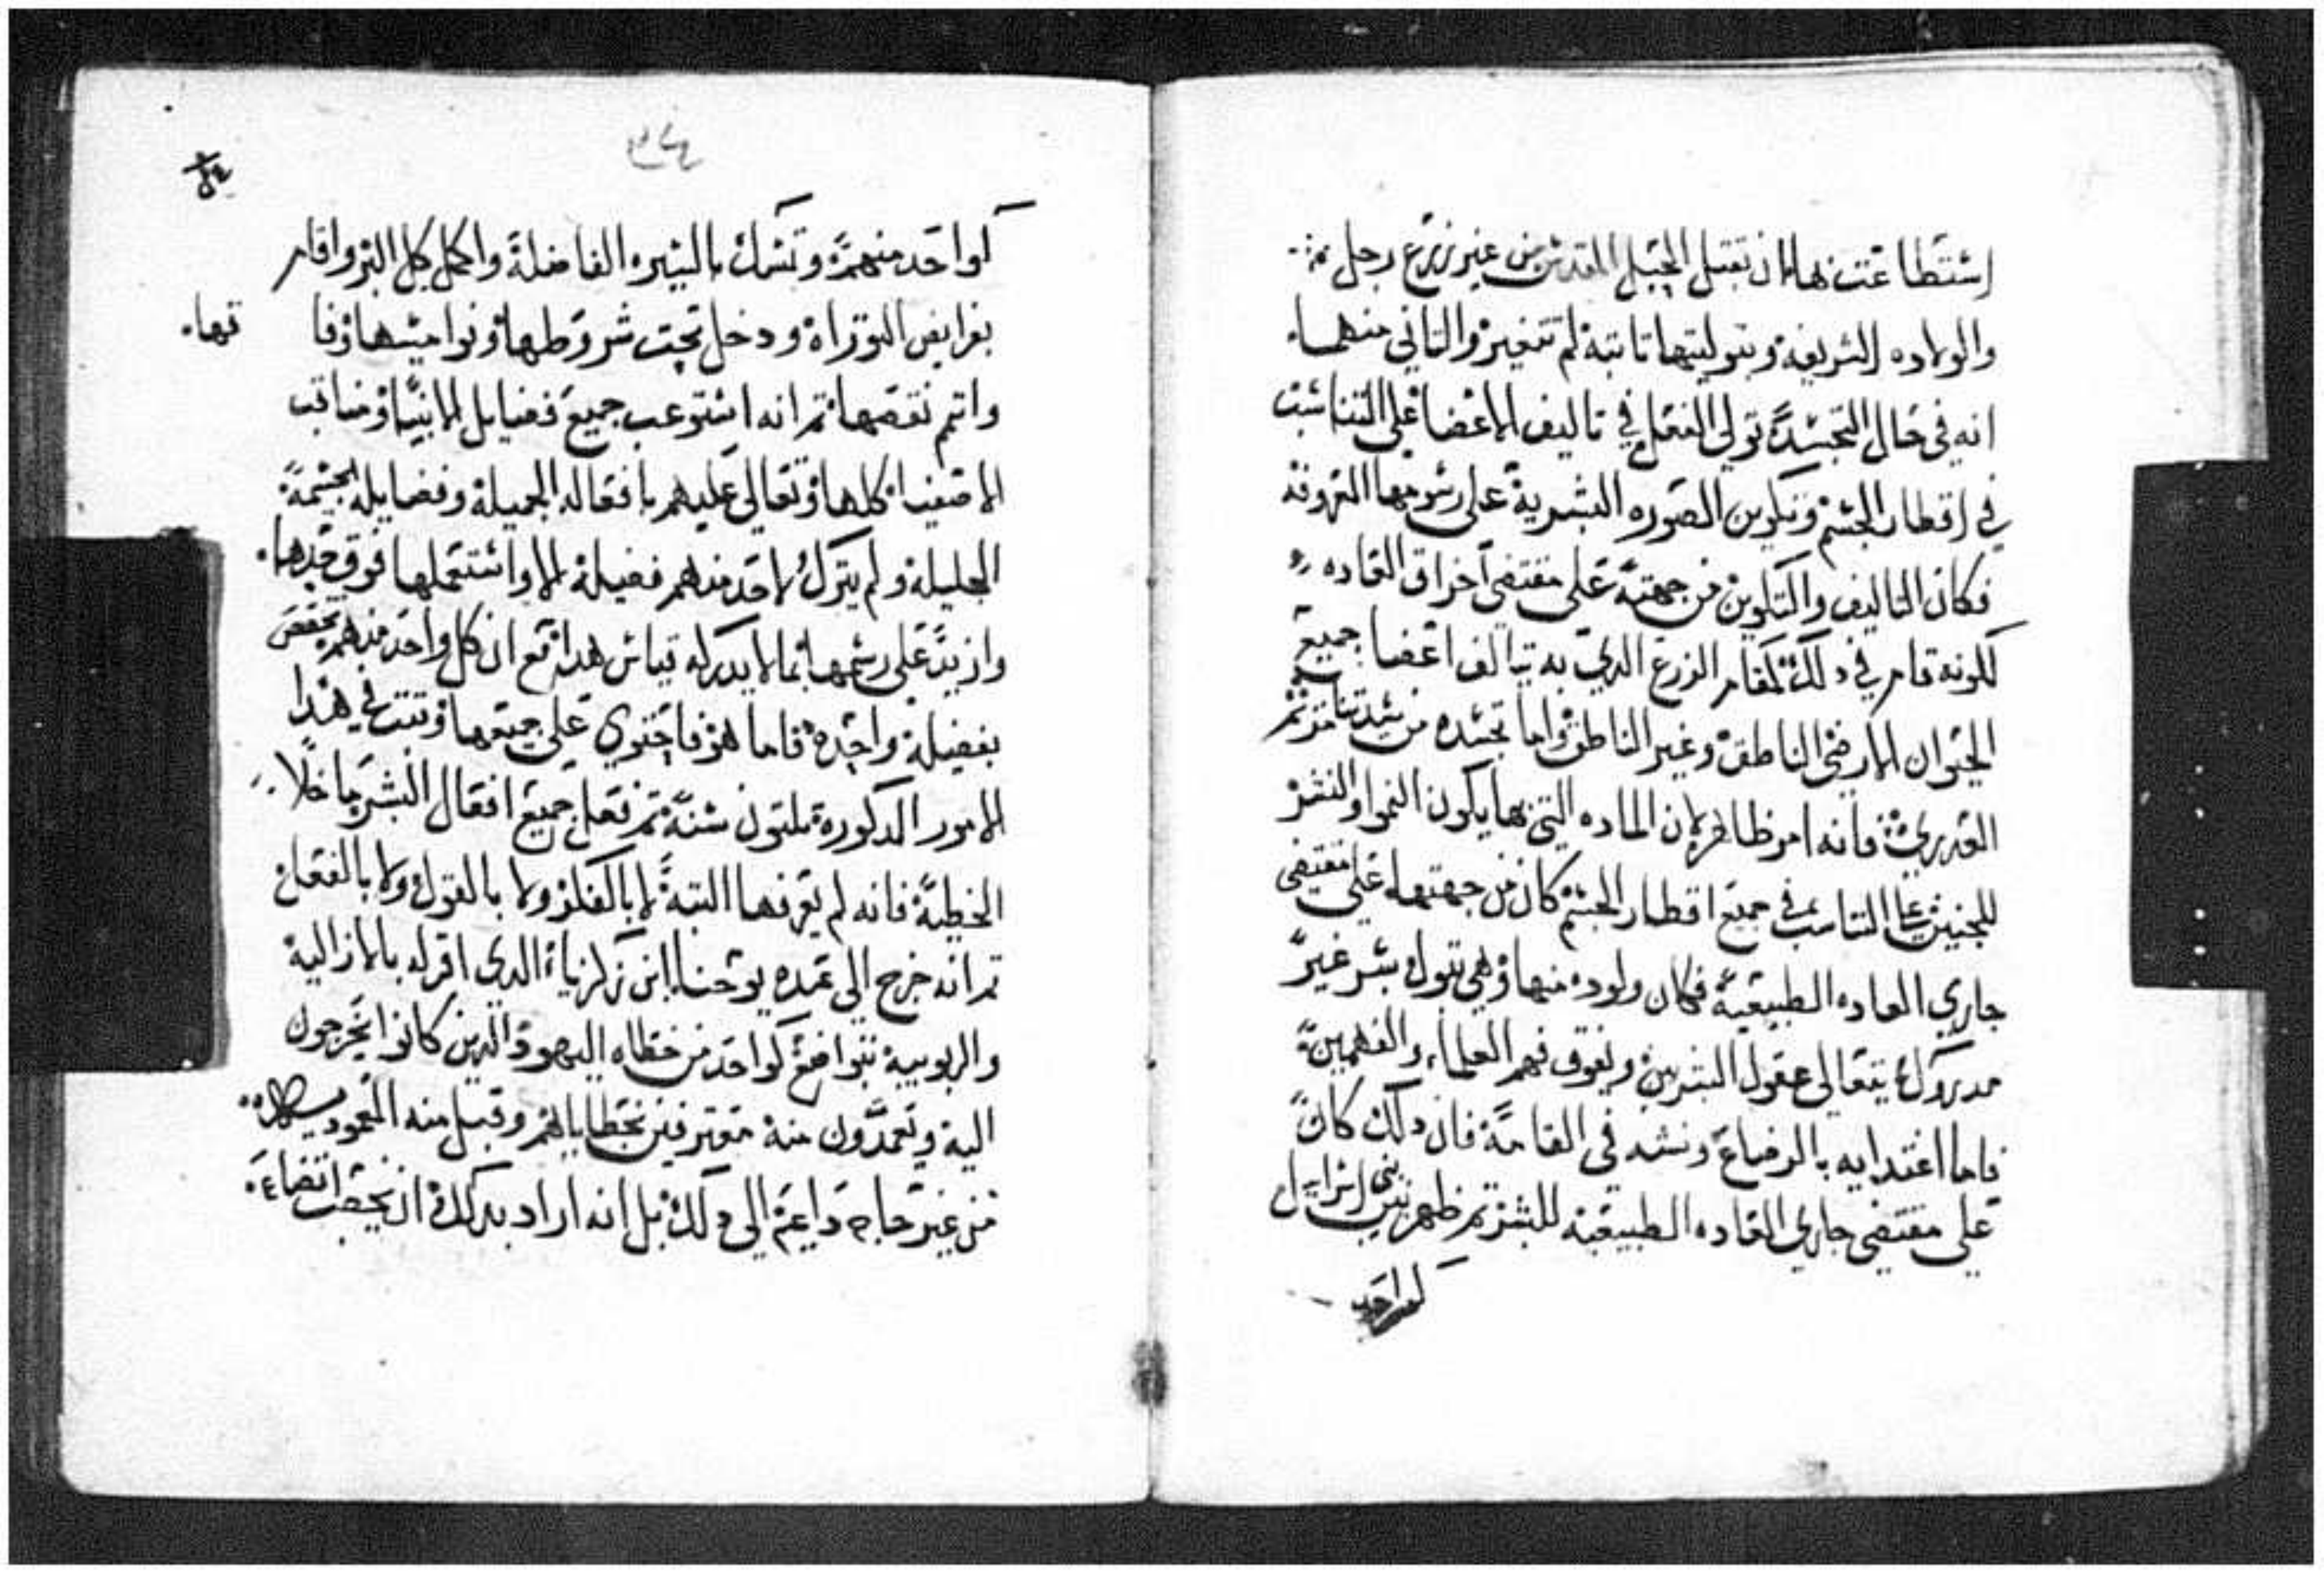 استطاعت بها ان تقبل الحبل المقدس من غير زرع رجل
والولاده الشريفة وبتوليتها ثابتة لم تتغير والثاني منهما
انه في حال التجسد تولي الفعل في تاليف الاعضا علي التناسب
في اقطار الجسم وتكوين الصوره البشرية علي رسومها المعروفه
فكان التاليف والتكوين من جهته علي مقتضي اخراق العاده
لكونه قام في دلك مقام الزرع الدي به تتالف اعضا جميع
الحيوان الارضي الناطق وغير الناطق واما تجسده من سيدتنا مرتمريم
العدري فانه امر ظاهر لان الماده التي بها يكون النموا والنشو
للجنين علي التناسب في جميع اقطار الجسم كان من جهتها علي مقتضي
جاري العاده الطبيعية فكان ولوده منها وهي بتول بشر غير
مدروك يتعالي عقول البشريين ويفوق فهم العلماء والفهميين
فاما اغتدايه بالرضاع ونشه في القامة فان دلك كان
علي مقتضي جاري العاده الطبيعية للبشر تم ظهر بين بني اسراييل
كواحد
كواحد منهم وتمسك بالسيره الفاضلة واكمل كل البر واقام
بفرايض التوراه ودخل تحت شروطها ونواميسها وفا
تها
واتم نقصها تم انه استوعب جميع فضايل الانبيا ومناقب
الاصفيا كلها وتعالي عليهم بافعاله الجميلة وفضايله الجسمة
الجليلة ولم يترك لاحد منهم فضيلة الا واستعملها فوق حدها
وازيد علي رسمها بما لا يدركه قياس هدا مع ان كل واحد منهم تخصص
بفضيلة واحده فاما هو فاحتوي علي جميعها وتبت في هدا
الامور المدكورة تلتون سنة تم فعل جميع افعال البشر ما خلا
الخطية فانه لم يعرفها البتة لا بالفكر ولا بالقول ولا بالفعل
تم انه خرج الي عمده يوحنا ابن زكريا الدي اقر له بالازالية
والربوبية بتواضع كواحد من خطاه اليهود الدين كانوا يخرجون
الية ويعمدون منة معترفين بخطاياهم وقبل منه المعمودية
من غير حاجه داعية الي دلك بل انه اراد بدلك ان يحقق اتضاعه